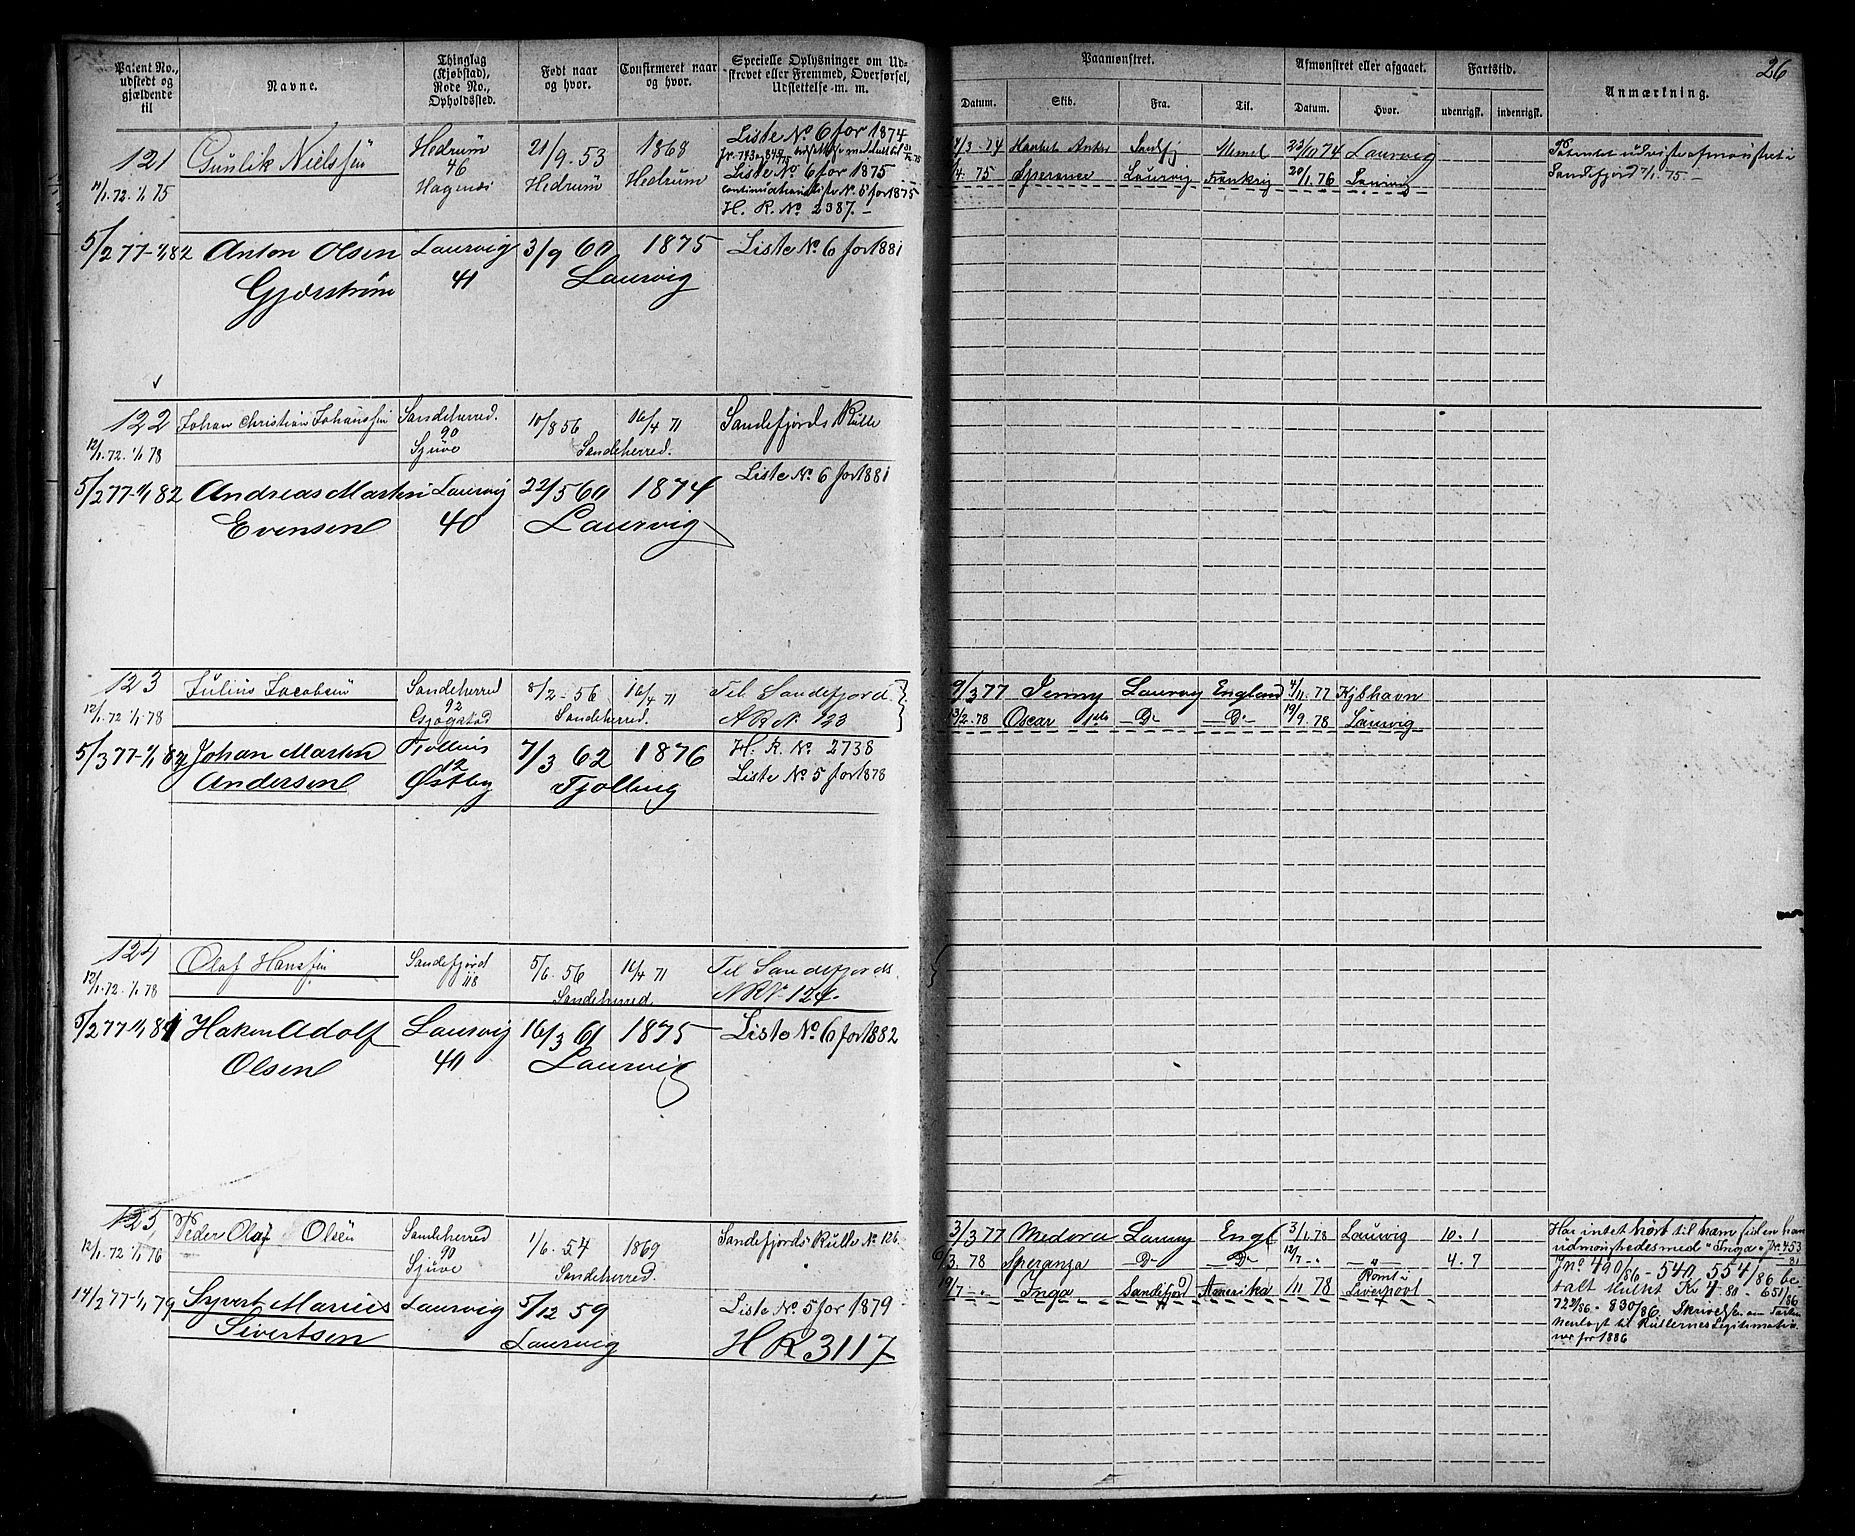 26
Patent No., udstedt og gjældende til
Navne.
Thinglag (Kjøbstad), Rode No., Opholdssted.
Født naar og hvor.
Confirmeret naar og hvor.
Specielle Oplysninger om Udskrevet eller Fremmed, Overførsel, Udslettelse m. m.
Paamønstret.
Datum.
Skib.
Fra.
Til.
Afmønstret eller afgaaet.
Datum.
Hvor.
Fartstid.
udenrigsk.
indenrigsk.
Anmærkning.
121 Gunlik Nielssen Hedrum 21/9 53 1868 Liste No 6 for 1874
46
11/1.72. 1/1 75 Hagenæs Hedrum Hedrum Liste No 6 for 1875
continuationsliste No 5 for 1875
H. R. No 2387.
74 Sandefj Memel 22/10 74 Laurvig
4. 75 Sperance Laurvig Frankrig 20/1. 76 Laurvig
Sandefjord 7/1. 75.
5/2 77-1/1 82 Anton Olsen Laurvig 3/9 60 1875 Liste No 6 for 1881
Gjerstrøm 41 Laurvig
122 Johan Christian Johanssen Sandeherred. 10/8 56 16/4 71 Sandefjords Rulle
90
12/1.72. 1/1 78 Sjuve Sandeherred.
5/2 77-1/1 82 Andreas Martin Laurvig 22/5 60 1874 Liste No 6 for 1881
Evensen 40 Laurvig
123 Julius Jacobsen Sandeherred 8/2-56 16/4 71 Til Sandefjord.
92
12/1.72 1/1 78 Gjøgstad Sandeherred. A R No 123
9/3 77 Jenny Laurvig England 4/11. 77 Kjøbhavn
13/2. 78 Oscar 1ste Do Do 19/9. 78 Laurvig
5/3 77-1/1 82 Johan Martin Tjølling 7/3 62 1876 H. R. No 2738
12
Andersen Østby Tjølling Liste No 5 for 1878
124 Olaf Hanssen Sandefjord 5/6. 56 16/4 71 Til Sandefjords.
118
12/1.72. 1/1 78 Sandeherred ARNo 124.
5/2 77-1/1 81 Haken Adolf Laurvig 16/3 61 1875 Liste No 6 for 1882
Olsen 40 Laurvig
125 Peder Olaf Olsen Sandeherred 1/6. 54 1869 Sandefjords Rulle No 126.
90
12/1.72 1/1 76 Sjuve Sandeherred.
3/3 77 Medora Laurvig Engl 3/1. 78 Laurvig 10. 1
6/3. 78 Speranza Do Do 12/7 - „ 4. 7
19/7 - Inga Sandefjord Amerika /11 78 Rømt i Liverpool
Har intet hørt til ham siden han
udmønstredes med "Inga". Jr. 453
Jno 490/86 - 540 554/86 be
talt Mulkt Kr 4.80 - 651/86
722/86 - 830/86. Skrivelse om
Henlagt til Rullernes Legitimatio
ner for 1886
14/2 77-1/1 79 Syvert Marius Laurvig 5/12 59 Liste No 5 for 1879
Sivertsen Laurvig H R 3117